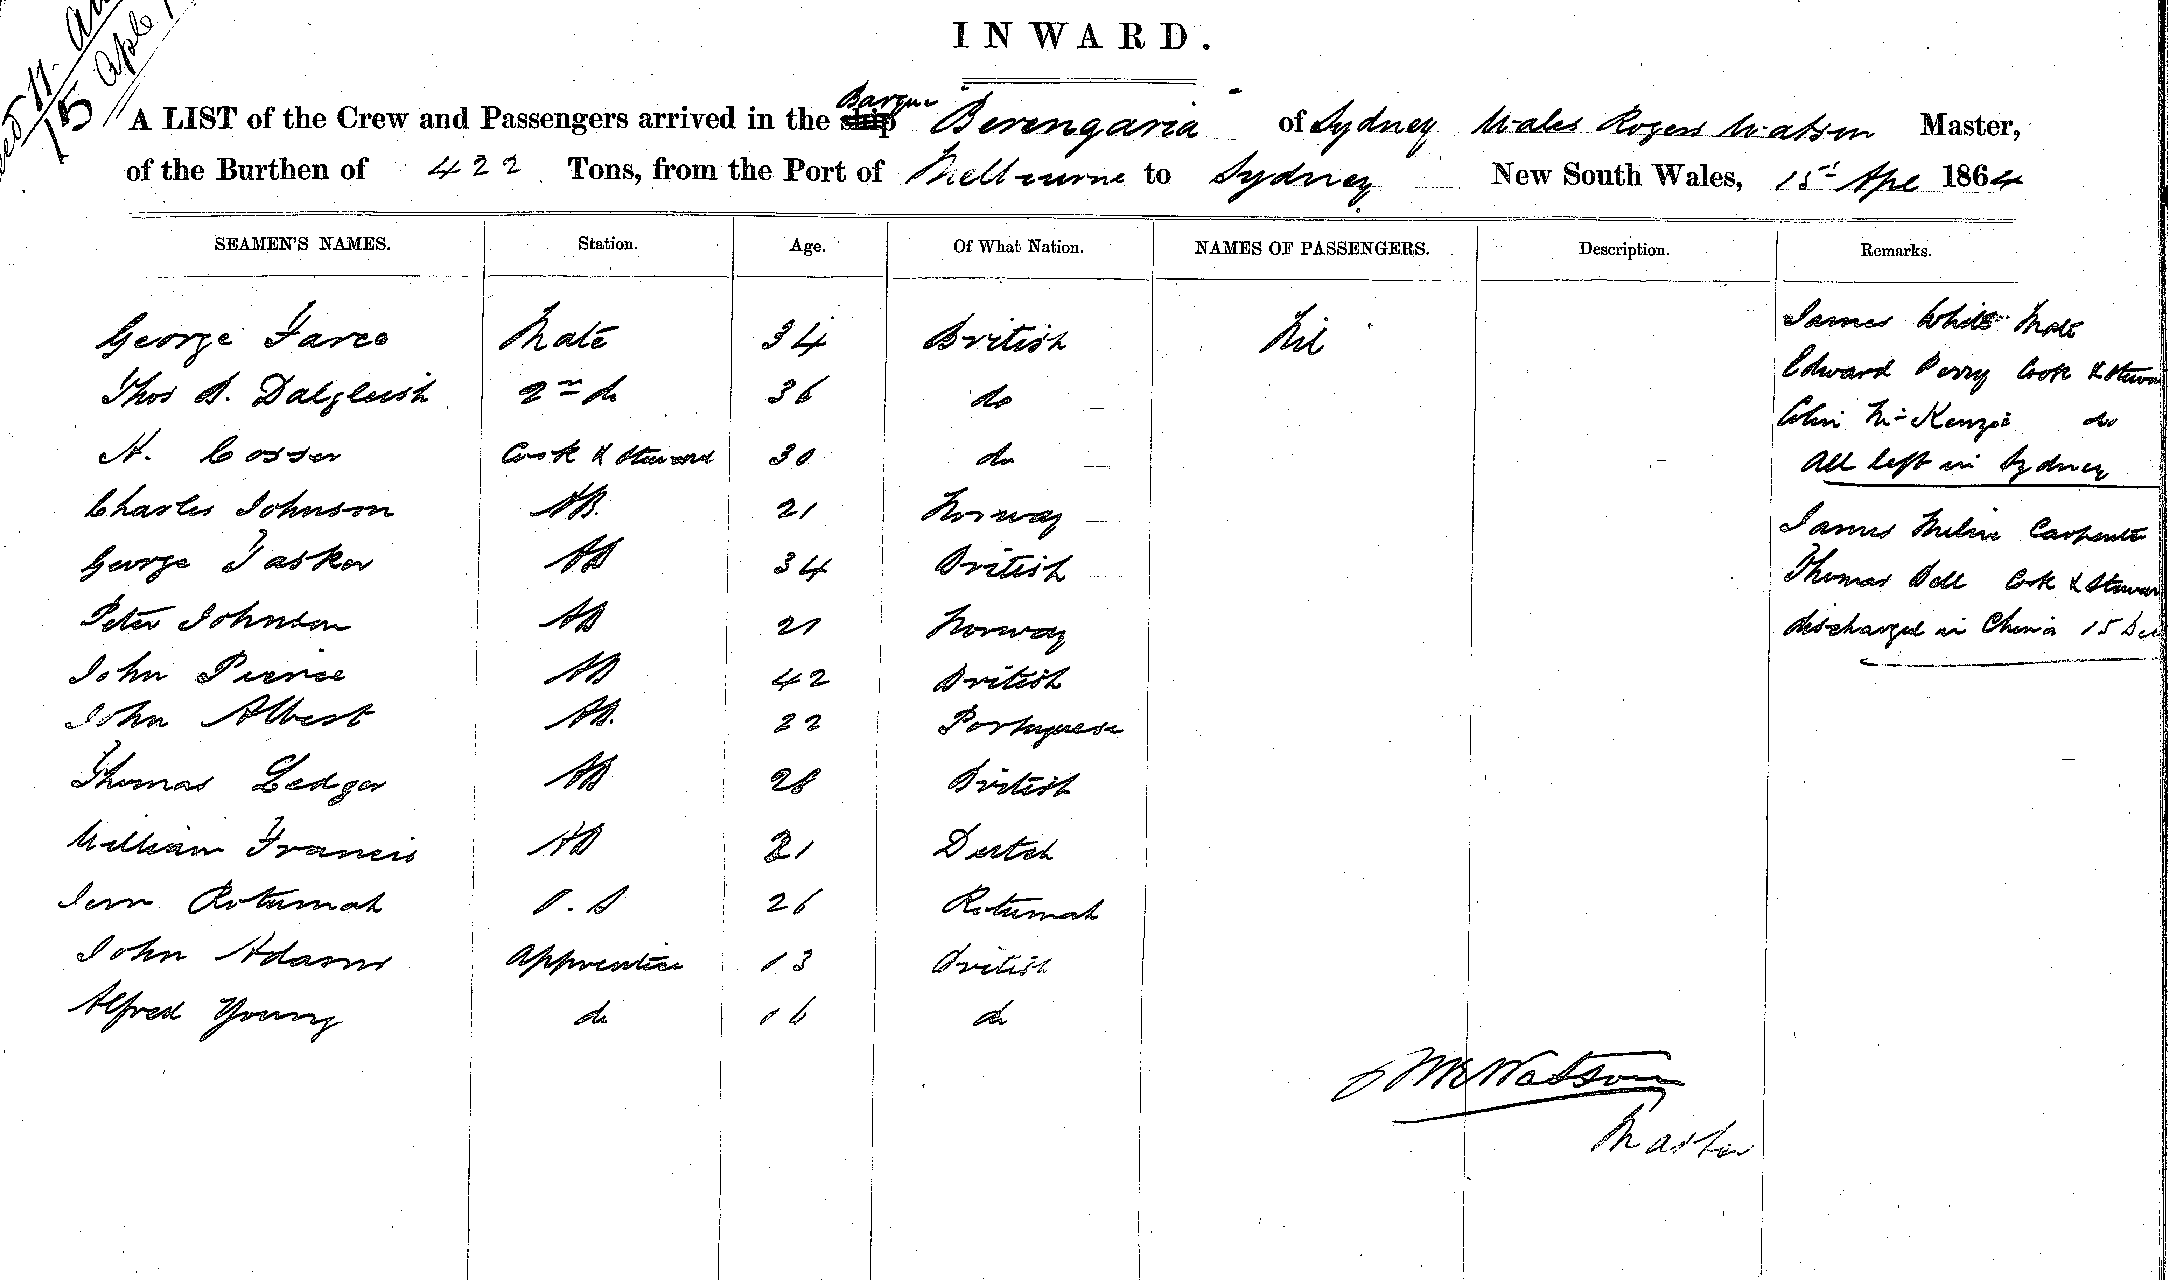 INWARD.
15 Aple
A LIST of the Crew and Passengers arrived in the ship Barque Berengaria of Sydney Wales Rogers Watson Master,
of the Burthen of 422 Tons, from the Port of Melbourne to Sydney New South Wales, 15th Apl 1864
SEAMEN'S NAMES. Station. Age. Of What Nation. NAMES OF PASSENGERS. Description. Remarks.
George Farce Mate 34 British Nil James White Mate
Thos B. Dalgleish 2nd do 36 do Edward Perry Cook & Stewa
H. Cosser Cook & Steward 30 do Colin McKenzie do
All left in Sydney
Charles Johnson AB. 21 Norway James Milne Carpente
George Tasker AB 34 British Thomas Bell Cook & Stewar
Peter Johnson AB 21 Norway discharged in China 15 Dec
John Pierce AB 42 British
John Albert AB. 22 Portuguese
Thomas Ledger AB 28 British
William Francis AB 21 Dutch
Jem Rotumah O.S 26 Rotumah
John Adams Apprentice 13 British
Alfred Young do 16 do
WRWatson
Master